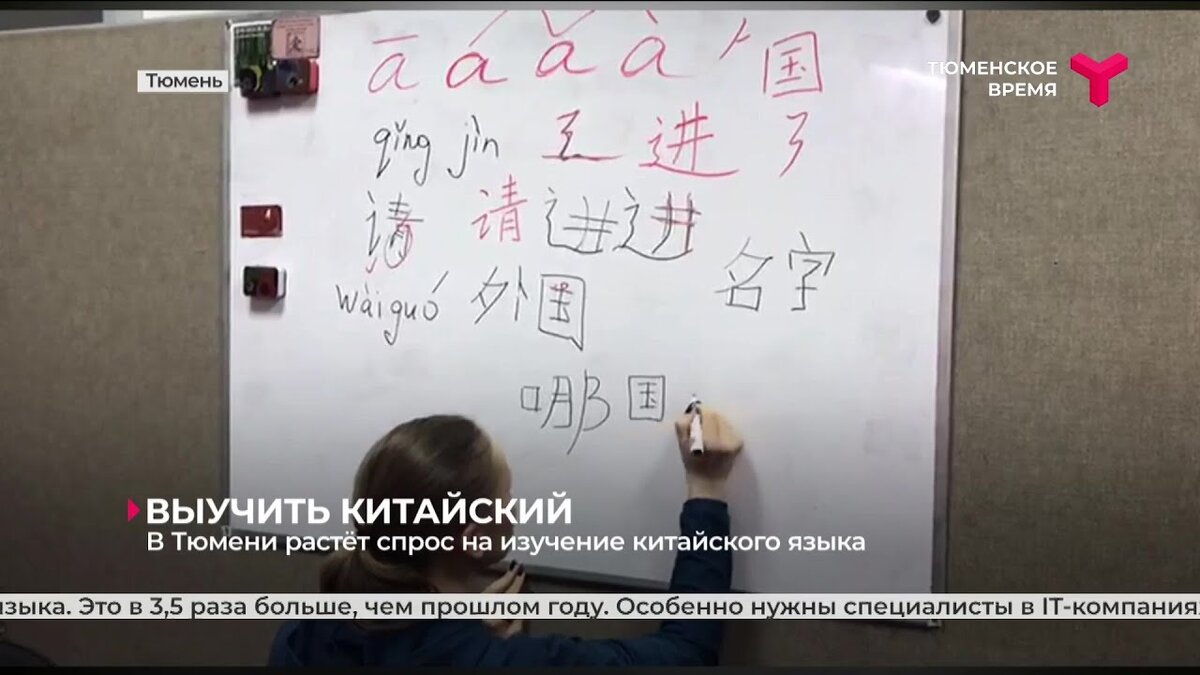 Тюмень
ТЮМЕНСКОЕ
ВРЕМЯ
ā á ǎ à 国
qǐng jìn 进
请 请 进 进
wàiguó 外国
名字
哪国
ВЫУЧИТЬ КИТАЙСКИЙ
В Тюмени растёт спрос на изучение китайского языка
языка. Это в 3,5 раза больше, чем прошлом году. Особенно нужны специалисты в IT-компания